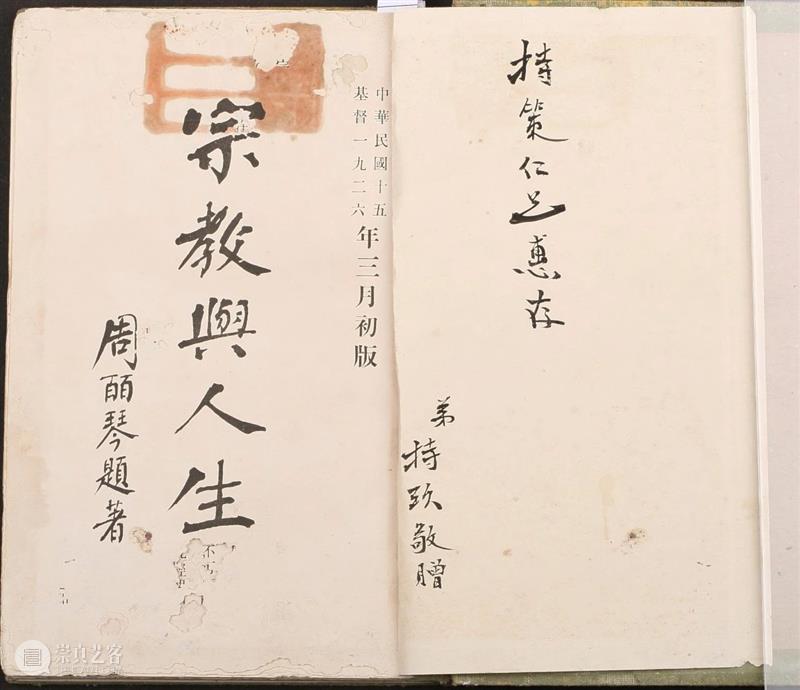 持策仁兄惠存
弟持敬贈
中華民國十五
基督一九二六
年三月初版
宗教與人生
周皕琴題著
崇真艺客